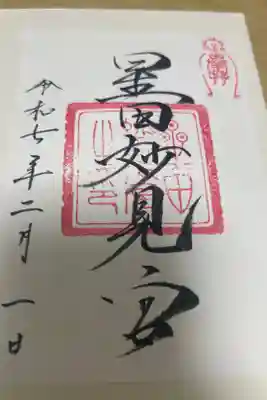 星田妙見宮
令和七年二月一日